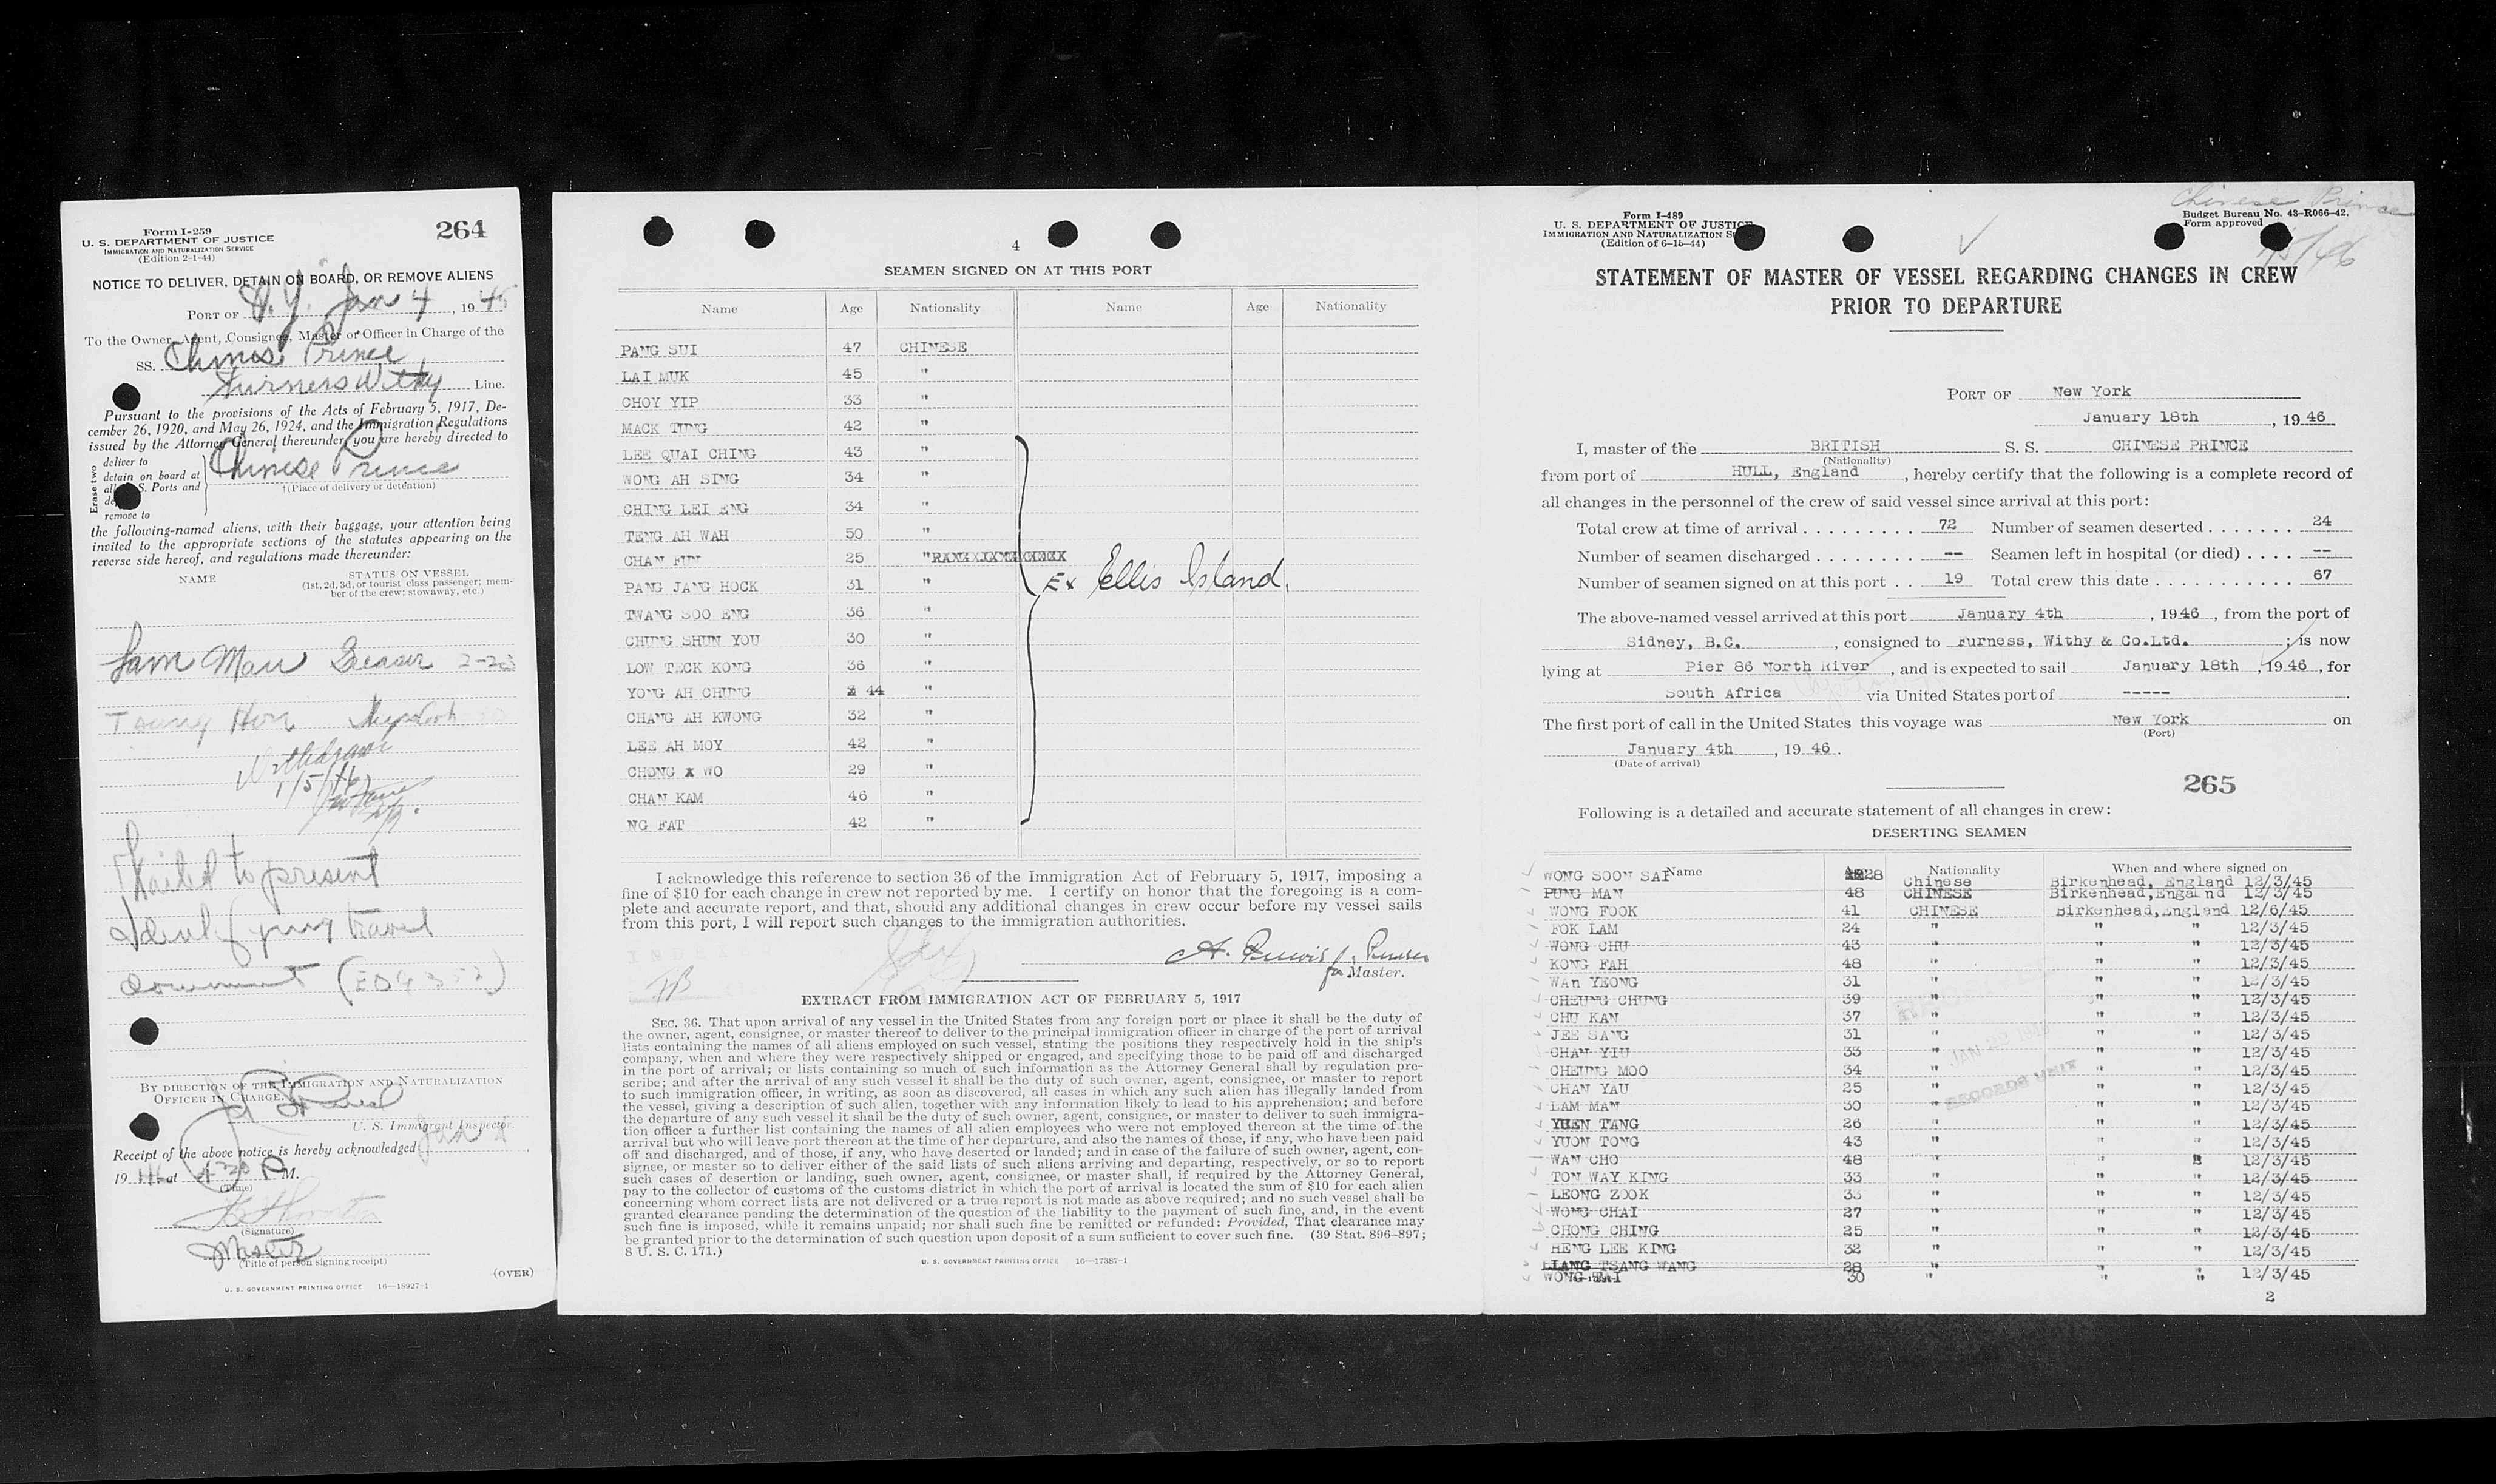 Form I-259
U. S. DEPARTMENT OF JUSTICE
IMMIGRATION AND NATURALIZATION SERVICE
(Edition 2-1-44)
264
NOTICE TO DELIVER, DETAIN ON BOARD, OR REMOVE ALIENS
PORT OF N.Y. Jan 4, 1945
To the Owner, Agent, Consignee, Master or Officer in Charge of the
SS. Chinese Prince
Furness Withy Line.
Pursuant to the provisions of the Acts of February 5, 1917, De-
cember 26, 1920, and May 26, 1924, and the Immigration Regulations
issued by the Attorney General thereunder, you are hereby directed to
Erase two
deliver to
detain on board at
all U. S. Ports and
remove to
Chinese Prince
†(Place of delivery or detention)
the following-named aliens, with their baggage, your attention being
invited to the appropriate sections of the statutes appearing on the
reverse side hereof, and regulations made thereunder:
NAME
STATUS ON VESSEL
(1st, 2d, 3d, or tourist class passenger; mem-
ber of the crew; stowaway, etc.)
Lam Man Greaser
Withdrawn
1/5/46
Failed to present
Identifying travel
document
BY DIRECTION OF THE IMMIGRATION AND NATURALIZATION
OFFICER IN CHARGE.
U. S. Immigrant Inspector.
Receipt of the above notice is hereby acknowledged Jan 4
1946 at 4 30 P M.
(Time)
(Signature)
Master
(Title of person signing receipt)
(OVER)
U. S. GOVERNMENT PRINTING OFFICE 16—18927-1
4
SEAMEN SIGNED ON AT THIS PORT
Name Age Nationality Name Age Nationality
PANG SUI 47 CHINESE
LAI MUK 45 "
CHOY YIP 33 "
MACK TUNG 42 "
LEE QUAI CHING 43 "
WONG AH SING 34 "
CHING LEI ENG 34 "
TENG AH WAH 50 "
CHAN FUN 25 "
PANG JANG HOCK 31 "
Ex Ellis Island.
TWANG SOO ENG 36 "
CHUNG SHUN YOU 30 "
LOW TECK KONG 36 "
YONG AH CHUNG 44 "
CHANG AH KWONG 32 "
LEE AH MOY 42 "
CHONG X WO 29 "
CHAN KAM 46 "
NG FAT 42 "
I acknowledge this reference to section 36 of the Immigration Act of February 5, 1917, imposing a
fine of $10 for each change in crew not reported by me. I certify on honor that the foregoing is a com-
plete and accurate report, and that, should any additional changes in crew occur before my vessel sails
from this port, I will report such changes to the immigration authorities.
for Master.
EXTRACT FROM IMMIGRATION ACT OF FEBRUARY 5, 1917
SEC. 36. That upon arrival of any vessel in the United States from any foreign port or place it shall be the duty of
the owner, agent, consignee, or master thereof to deliver to the principal immigration officer in charge of the port of arrival
lists containing the names of all aliens employed on such vessel, stating the positions they respectively hold in the ship's
company, when and where they were respectively shipped or engaged, and specifying those to be paid off and discharged
in the port of arrival; or lists containing so much of such information as the Attorney General shall by regulation pre-
scribe; and after the arrival of any such vessel it shall be the duty of such owner, agent, consignee, or master to report
to such immigration officer, in writing, as soon as discovered, all cases in which any such alien has illegally landed from
the vessel, giving a description of such alien, together with any information likely to lead to his apprehension; and before
the departure of any such vessel it shall be the duty of such owner, agent, consignee, or master to deliver to such immigra-
tion officer a further list containing the names of all alien employees who were not employed thereon at the time of the
arrival but who will leave port thereon at the time of her departure, and also the names of those, if any, who have been paid
off and discharged, and of those, if any, who have deserted or landed; and in case of the failure of such owner, agent, con-
signee, or master so to deliver either of the said lists of such aliens arriving and departing, respectively, or so to report
such cases of desertion or landing, such owner, agent, consignee, or master shall, if required by the Attorney General,
pay to the collector of customs of the customs district in which the port of arrival is located the sum of $10 for each alien
concerning whom correct lists are not delivered or a true report is not made as above required; and no such vessel shall be
granted clearance pending the determination of the question of the liability to the payment of such fine, and, in the event
such fine is imposed, while it remains unpaid; nor shall such fine be remitted or refunded: Provided, That clearance may
be granted prior to the determination of such question upon deposit of a sum sufficient to cover such fine. (39 Stat. 896–897;
8 U. S. C. 171.)
U. S. GOVERNMENT PRINTING OFFICE 16—17387-1
Form I-489
U. S. DEPARTMENT OF JUSTICE
IMMIGRATION AND NATURALIZATION
(Edition of 6-15-44)
Chinese Prince
Budget Bureau No. 43-R066-42.
Form approved
STATEMENT OF MASTER OF VESSEL REGARDING CHANGES IN CREW
PRIOR TO DEPARTURE
PORT OF New York
January 18th, 1946
I, master of the BRITISH S. S. CHINESE PRINCE
(Nationality)
from port of HULL, England, hereby certify that the following is a complete record of
all changes in the personnel of the crew of said vessel since arrival at this port:
Total crew at time of arrival 72 Number of seamen deserted 24
Number of seamen discharged -- Seamen left in hospital (or died) --
Number of seamen signed on at this port 19 Total crew this date 67
The above-named vessel arrived at this port January 4th, 1946, from the port of
Sidney, B.C., consigned to Furness, Withy & Co.Ltd.; is now
lying at Pier 86 North River, and is expected to sail January 18th, 1946, for
South Africa via United States port of -----
The first port of call in the United States this voyage was New York on
(Port)
January 4th, 1946.
(Date of arrival)
265
Following is a detailed and accurate statement of all changes in crew:
DESERTING SEAMEN
Name Nationality When and where signed on
WONG SOON SAI 28 Chinese Birkenhead, England 12/3/45
PUNG MAN 48 CHINESE Birkenhead,Engalnd 12/3/45
WONG FOOK 41 CHINESE Birkenhead,England 12/6/45
FOK LAM 24 " " " 12/3/45
WONG CHU 43 " " " 12/3/45
KONG FAH 48 " " " 12/3/45
WAn YEONG 31 " " " 12/3/45
CHEUNG CHUNG 39 " " " 12/3/45
CHU KAN 37 " " " 12/3/45
JEE SANG 31 " " " 12/3/45
CHAN YIU 33 " " " 12/3/45
CHEUNG MOO 34 " " " 12/3/45
CHAN YAU 25 " " " 12/3/45
LAM MAN 30 " " " 12/3/45
YUEN TANG 26 " " " 12/3/45
YUON TONG 43 " " " 12/3/45
WAN CHO 48 " " 12/3/45
TON WAY KING 33 " " " 12/3/45
LEONG ZOOK 33 " " " 12/3/45
WONG CHAI 27 " " " 12/3/45
CHONG CHING 25 " " " 12/3/45
HENG LEE KING 32 " " " 12/3/45
LIANG TSANG WANG 28
WONG TAI 30 " " " 12/3/45
RECORDS UNIT
2